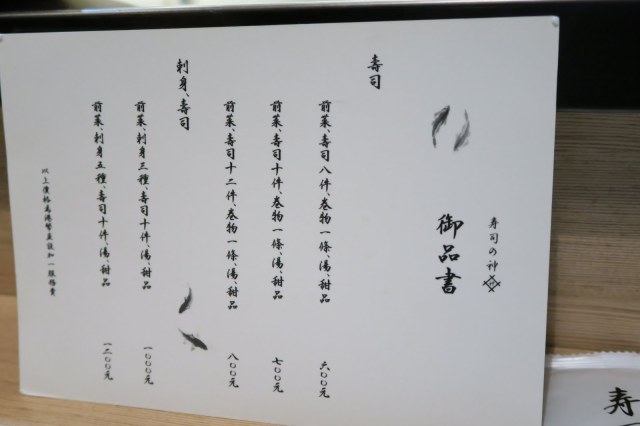 寿司の神
御品書
壽司
前菜、壽司八件、卷物一條、湯、甜品 六〇〇元
前菜、壽司十件、卷物一條、湯、甜品 七〇〇元
前菜、壽司十二件、卷物一條、湯、甜品 八〇〇元
刺身、壽司
前菜、刺身三種、壽司十件、湯、甜品 一〇〇〇元
前菜、刺身五種、壽司十件、湯、甜品 一二〇〇元
以上價格為港幣並設加一服務費
寿